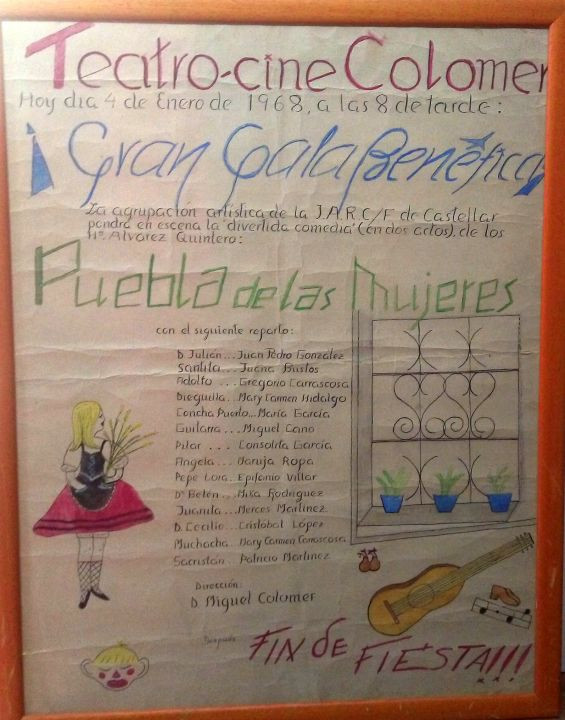 Teatro-cine Colomer
Hoy dia 4 de Enero de 1968, a las 8 de tarde:
¡Gran Gala Benéfica!
La agrupación artística de la J.A.R.C/F de Castellar
pondrá en escena la "divertida comedia" (en dos actos), de los
Hº. Alvarez Quintero:
Puebla de las Mujeres
con el siguiente reparto:
D. Julián... Juan Pedro González
Santita... Juana Bustos
Adolfo... Gregorio Carrascosa
Dieguilla... Mary Carmen Hidalgo
Concha Puerto... María García
Guitarra... Miguel Cano
Pilar... Consolita García
Angela... Maruja Ropa
Pepe Lora... Epifanio Villar
Dª Belén... Mika Rodriguez
Juanita... Merces Martinez
D. Cecilio... Cristóbal López
Muchacha... Mary Carmen Carrascosa
Sacristan... Patricio Martinez
Dirección:
D. Miguel Colomer
Después
FIN de FIESTA!!!